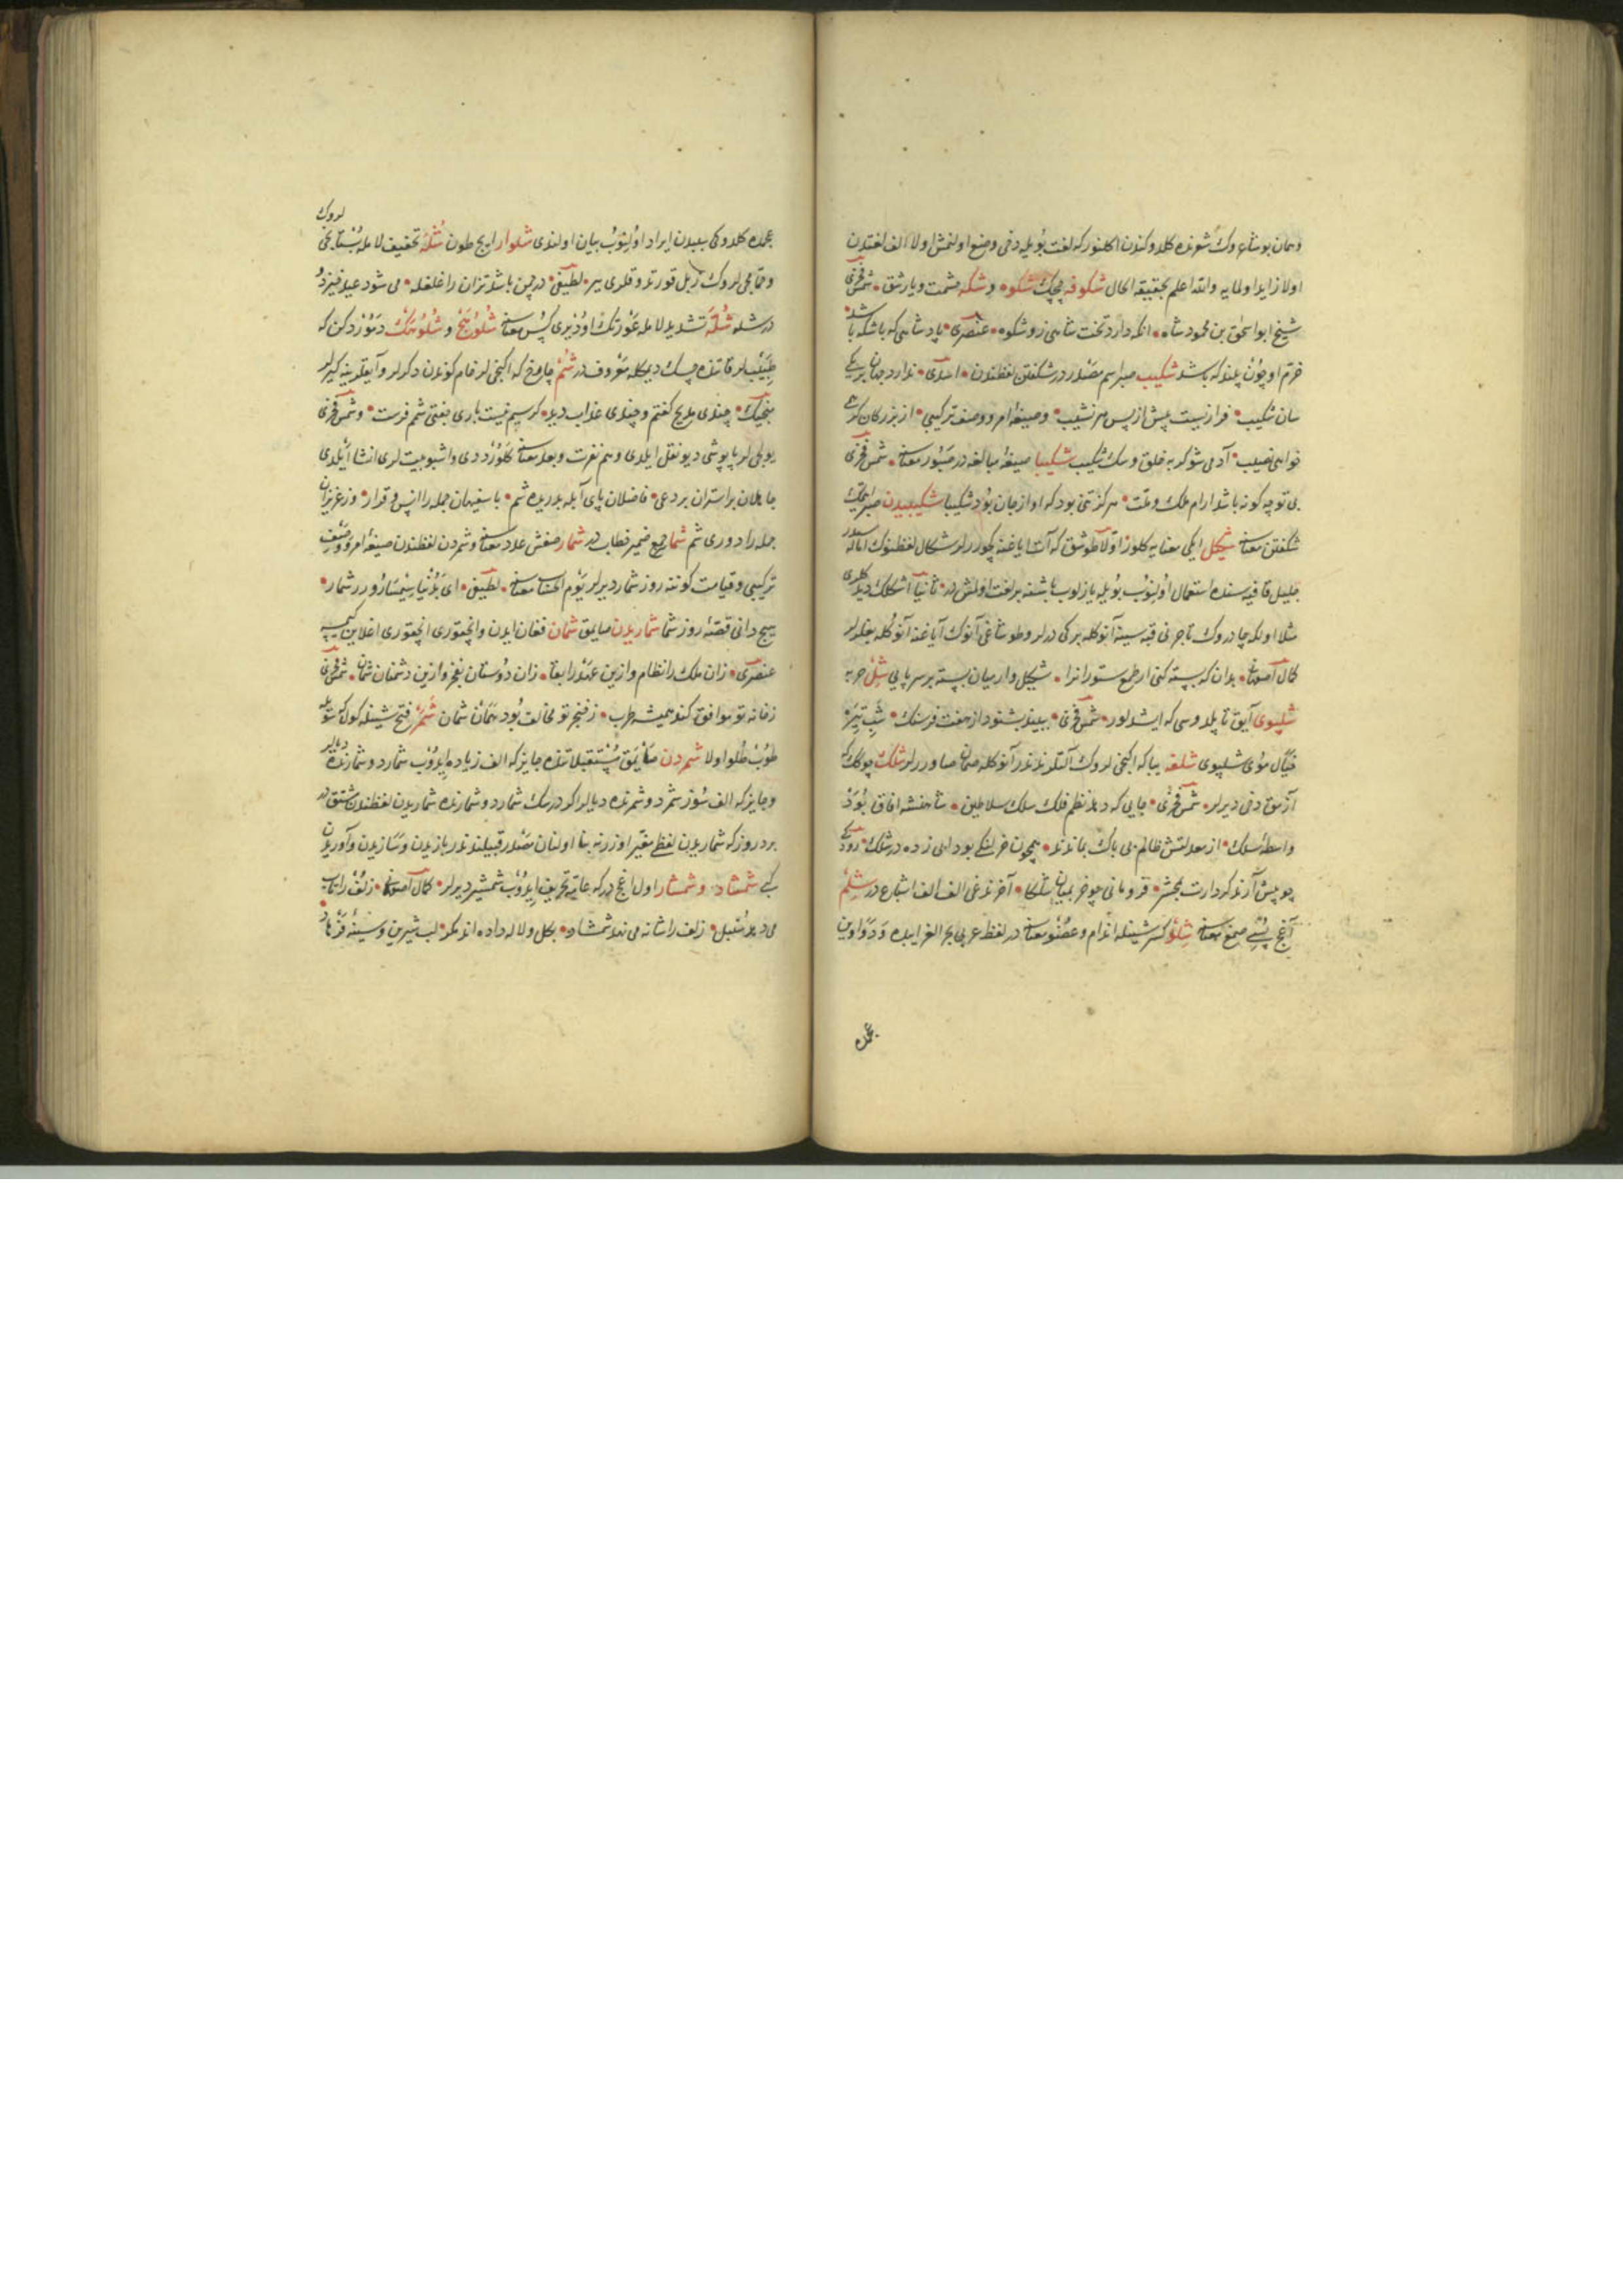 وهمان بوشاعروك شعرنده كلدوكندن اكلنور كه لغت بويله دخى وضع اولنمش اولا الف لغتدن
اولا زايد اولمايه والله اعلم بحقيقه الحال شكوفه چچك شكوه و شكه حشمت ويارشق شمس فخرى
شيخ ابو اسحق بن محمود شاه انكه دارد تخت شاهى زو شكوه عنصرى پادشاهى كه باشكه باشد
خرم او چون بلند كه باشد شكيب صبر اسم مصدر در شكفتن لفظندن اسدى ندارد جهان بر يكى
سان شكيب فرازيست پيش از پس هر نشيب وصيغهٔ امر ووصف تركيبى از بزركان كر همى
خواهى نصيب آدمى شو كر به خلق وسك شكيب شكيبا صيغهٔ مبالغه در صبور معناسنه شمس فخرى
بى تو چه كونه باشد آرام ملك وملت هركز تنى بود كه او از جان بود شكيبا شكيبيدن صبر ايتمك
شكفتن معناسنه شكيل ايكى معنايه كلور اولا طوشق كه آت اياغنه چكورلر شكال لفظنوك اماله سيدر
جليل قافيه سنده استعمال اولنوب بويله يازلوب باشنه بر لغت اولمش در ثانيا اشكلك ديد كلرى
مثلا اولكه چادروك تاجرنى قبه سينه آنوكله بركدرلر وطوشاغى آنوك آياغنه آنوكله بغلرلر
كمال اصفهانى بدان كه بسته كنى از طمع ستورانرا شكيل وار ميان بسته بر سر پايى شل حربه
شلپوى آيق تاپلدوسى كه ايشدلور شمس فخرى ببيند بشنود از هفت فرسنك شب تيره
خيال موى شلپوى شلغه يبا كه اكنجى لروك آلتلرندندر آنوكله صمان صاورلر شلك چوكك كه
آزمق دخى ديرلر شمس فخرى جايى كه دهد نظم فلك سلك سلاطين شاهنشه افاق بود
واسطهٔ سلك از معدلتش ظالم بى باك بماندند همچون خر لنكى بود اهى زده در شلك رودكى
چو پيش آرند كردارت بمحشر فرو مانى چو خر بميان شلكا آخرندغى الف الف اشباع در شلم
آغج پستى صمغ معناسنه شلو كسر شينله اندام وعضو معناسنه در لفظ عربى بحر الغرايبده ودواوين
عجمده
عجمده كلدوكى ببلدن ايراد اولنوب بيان اولندى شلوار ايچ طون شله تخفيف لامله بستانجى
وقباجى لروك زبل قورتدوقلرى ير لطيفى در چمن باشد تزان را غلغله مى شود عيد خيزد
در شله شله تشديد لامله عورتك اوذيرى كس معناسنه شلوربيخ و شلوربنك دموزدكن كه
طبيبلر قاتنده چسك ديمكله معروف در شم چاروخ كه اكنجى لر خام كوندن دكرلر وآيقلرينه كيرلر
منجيك چندى مديح كفتم و چندى عذاب ديد كر سيم نيست بارى جفتى شم فرست و شمس فخرى
يوكى لر پاپوشى ديو نقل ايلدى وهم نفرت وبعد معناسنه كلور ددى واشبو بيت لرى انشا ايلدى
جاهلان بر استران بردعى فاضلان پاى آبله بدريده شم با سفيهان جمله را انس و قرار وز عزيزان
جمله را دورى شم شما جمع ضمير خطاب در شمار صغش عدد معناسنه وشمردن لفظندن صيغهٔ امر ووصف
تركيبى وقيامت كوننه روز شمار ديرلر يوم الحساب معناسنه لطيفى اى بدنيا سيمسار وزر شمار
هيچ دانى قصهٔ روز شمار شماريدن صايمق شمان فغان ايدن وانچقورى انچقورى اغلاين كمسه
عنصرى زان ملك را نظام وازين عهد را بقا زان دوستان بفخر وازين دشمنان شمان شمس فخرى
زمانه تو موافق كند هميشه طرب ز خنجر تو مخالف بود همان شمان شمر فتح شينله كولكه شويله
طوب طلو اولا شمردن صايمق مستقبلاتنده جايز كه الف زياده ايدوب شمارد وشمارنده ديلر
وجايز كه الف سوز شمرد وشمرنده ديلر اكر درسك شمارد وشمارنده شماريدن لفظندن مشتق
بردروز كه شماريدن لفظى مغير اوزرنه بنا اولنان مصدر قبيلندندر بازيدن وسازيدن وآوريدن
كبى شمشاد و شمشار اول اغج در كه عامه تحريف ايدوب شمشير ديرلر كمال اصفهانى زلف را تاب
مى دهد سنبل زلف را شانه مى نهد شمشاد بكل ولاله داده اند مكر لب شيرين وسينهٔ فرهاد